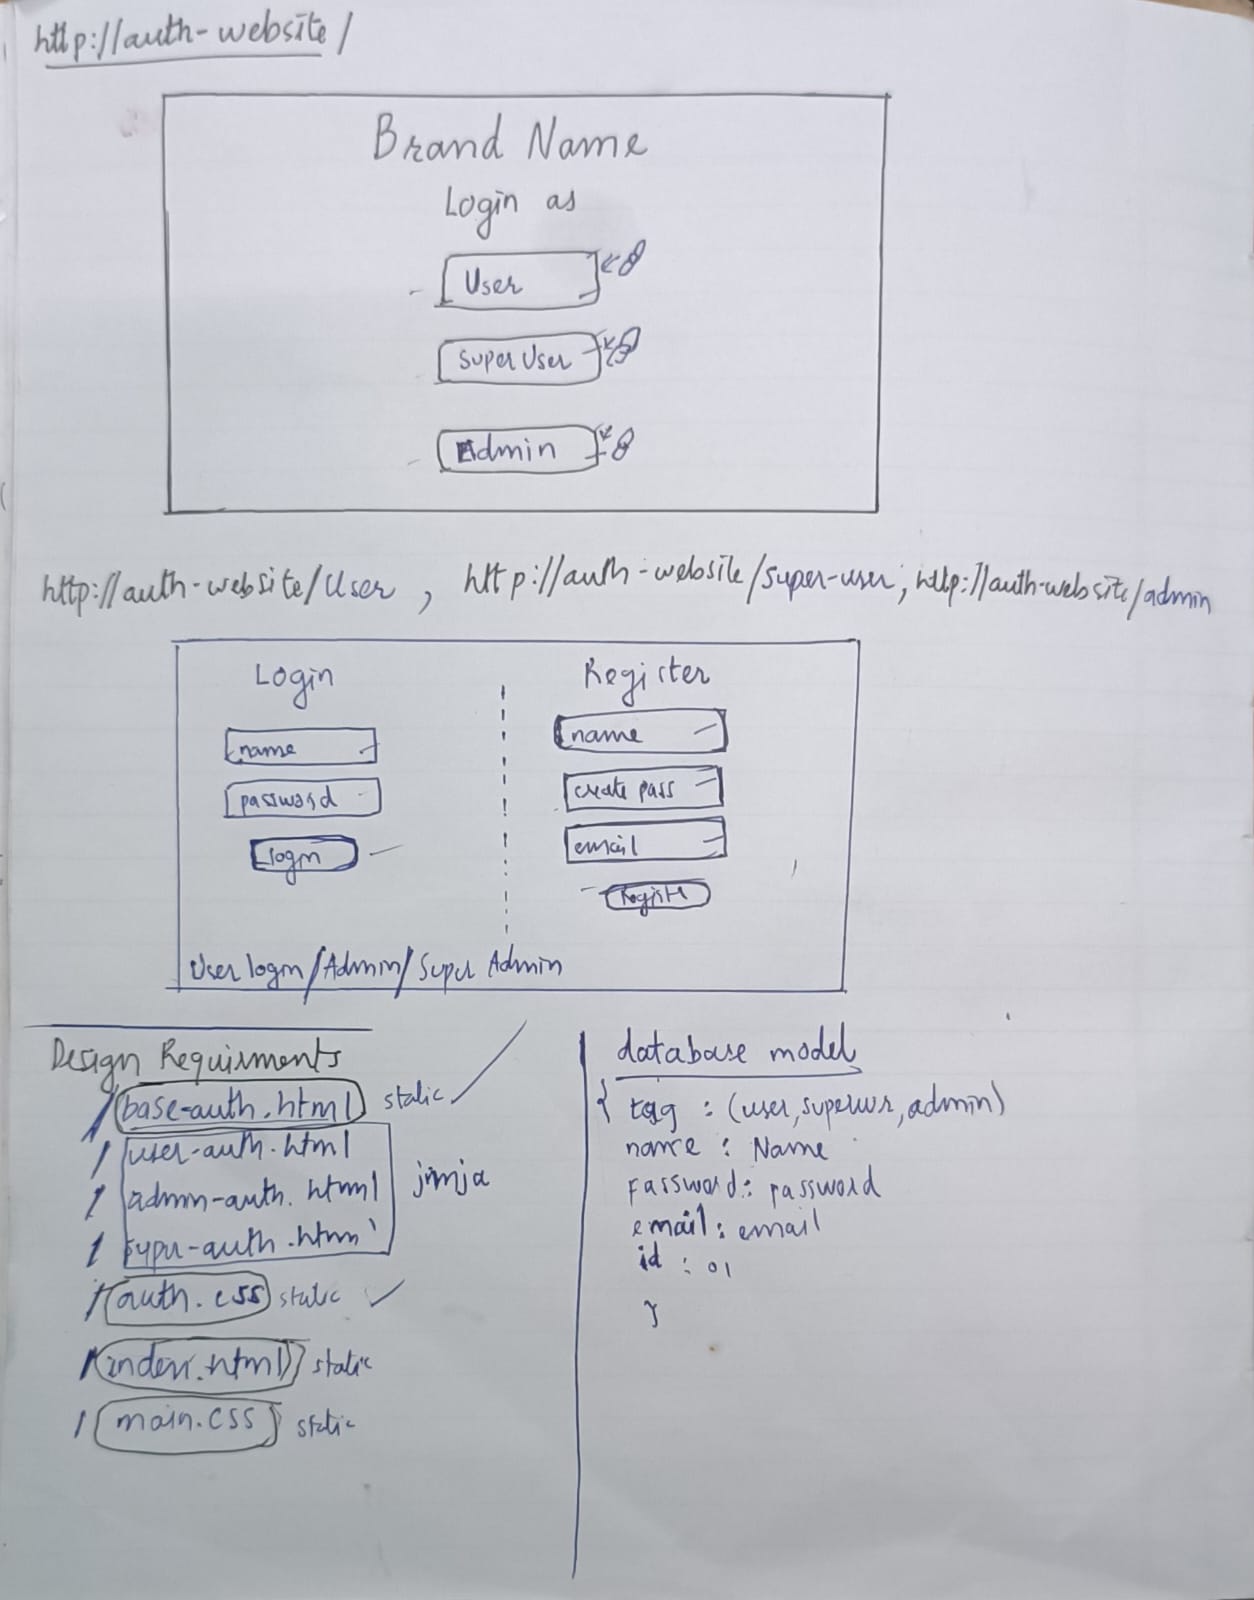 http://auth-website/
Brand Name
Login as
User
Super User
Admin
http://auth-website/User , http://auth-website/super-user, http://auth-website/admin
Login
name
password
login
Register
name
create pass
email
Register
User login/Admin/Super Admin
Design Requirments
base-auth.html static
user-auth.html
admin-auth.html jinja
super-auth.html
auth.css static
index.html static
main.css static
database model
{ tag : (user, superusr, admin)
name : Name
Password : password
email : email
id : 01
}